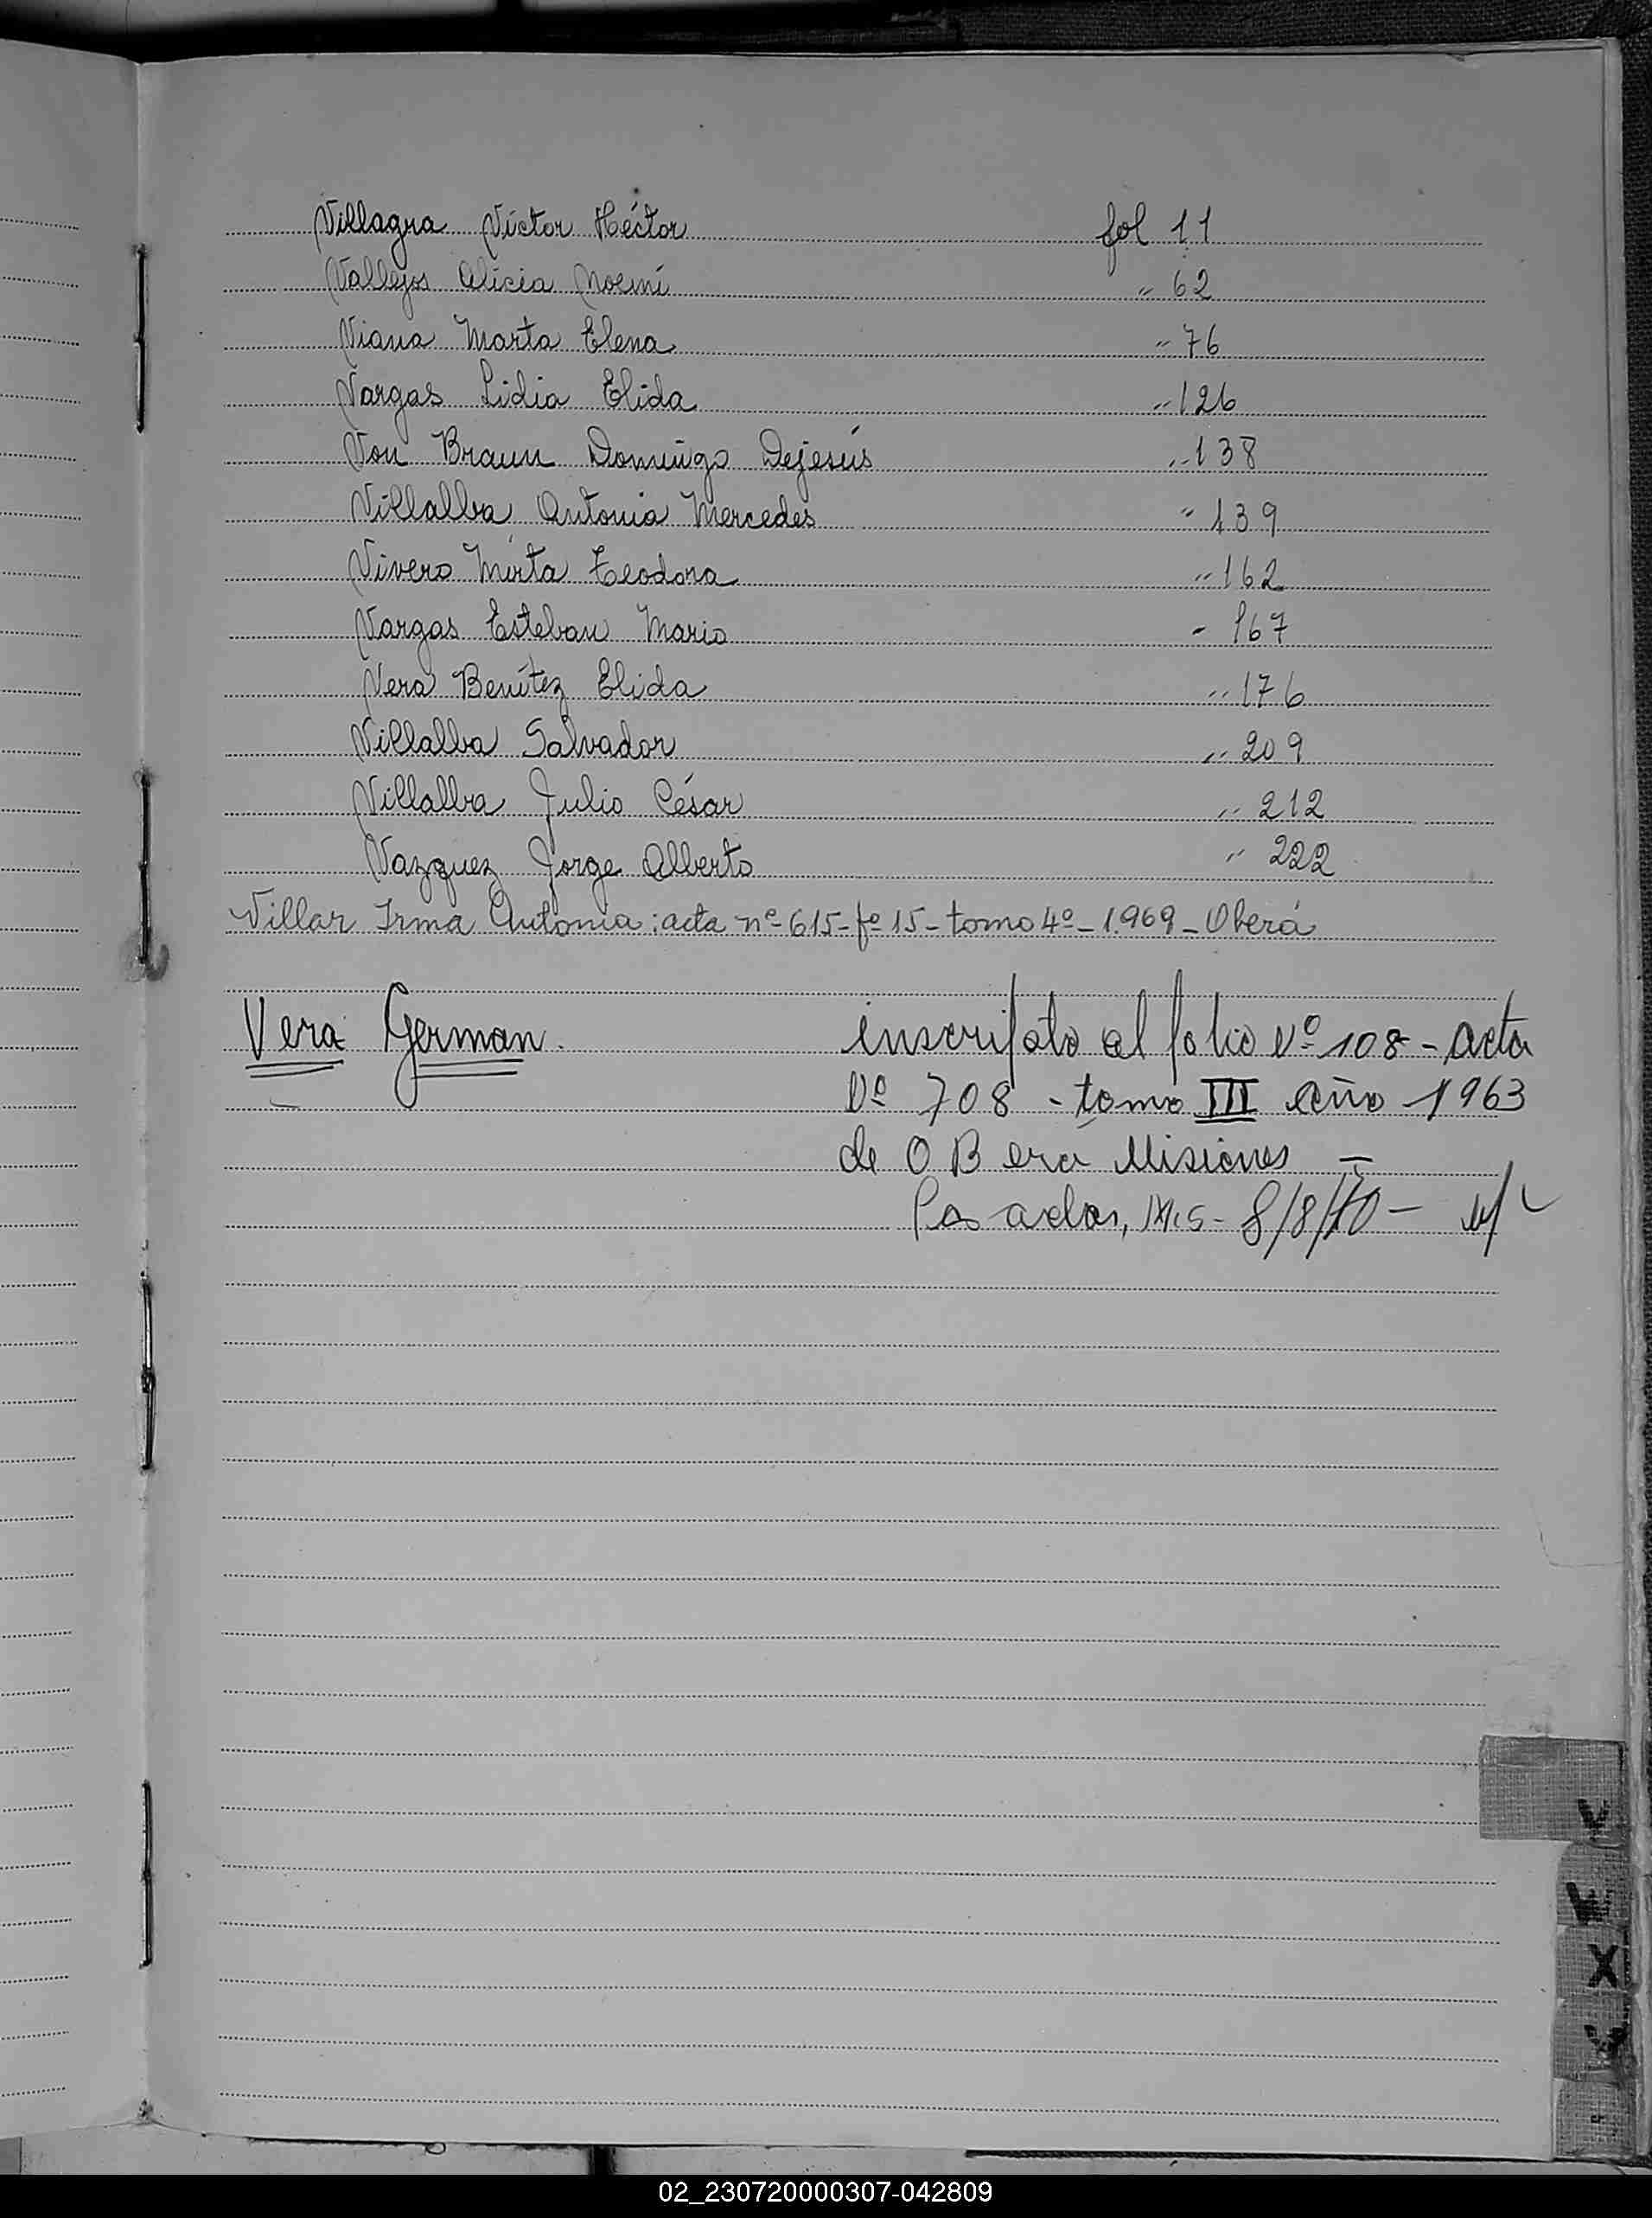 Villagra Víctor Héctor fol 11
Vallejos Alicia Noemí " 62
Viana Marta Elena " 76
Vargas Lidia Elida " 126
Von Braun Domingo Dejesús " 138
Villalba Antonia Mercedes " 139
Vivero Mirta Teodora " 162
Vargas Esteban Mario " 167
Vera Benítez Elida " 176
Villalba Salvador " 209
Villalba Julio César " 212
Vazquez Jorge Alberto " 222
Villar Irma Antonia: acta nº 615-fº 15-tomo 4º-1.969-Oberá
Vera German inscripto al folio Nº 108 - acta
Nº 708 - tomo III año 1963
de OBera Misiones -
Posadas, Mis - 8/8/70 -
V
W
X
Y
02_230720000307-042809